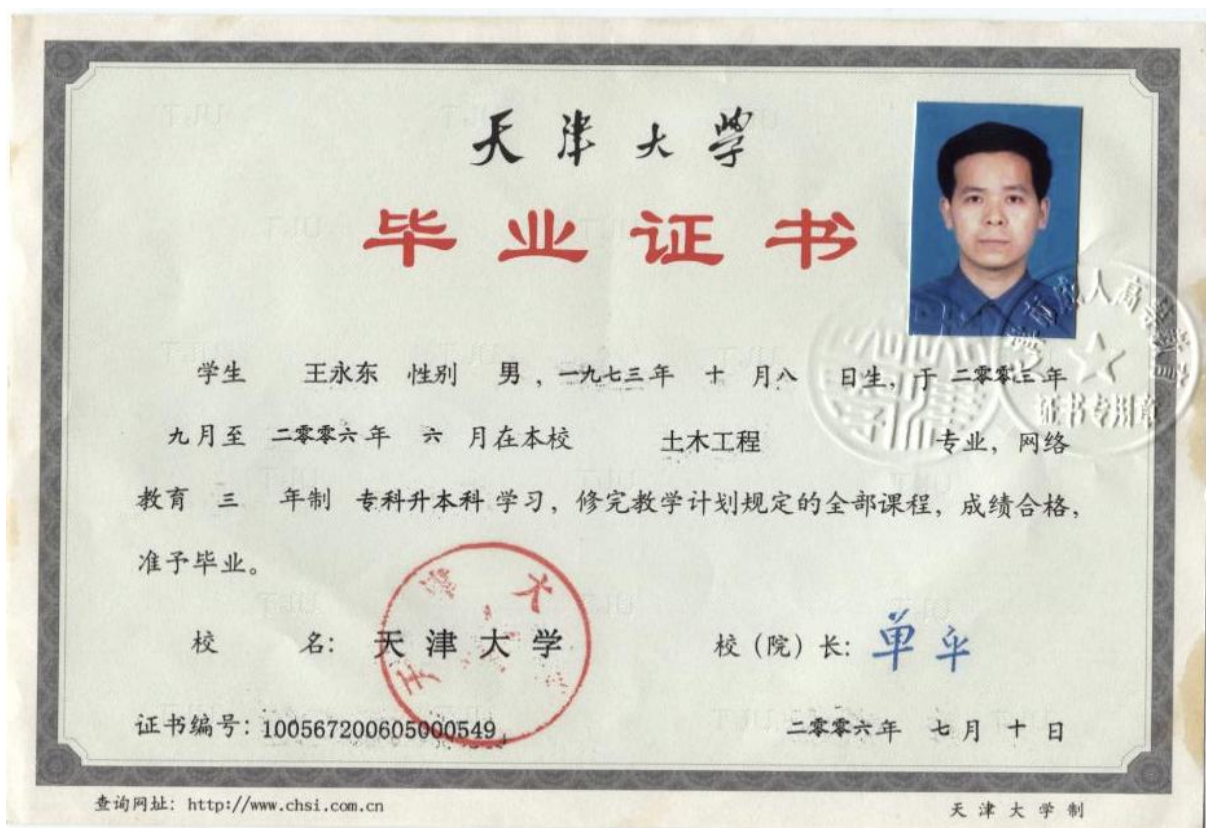 天津大学
毕业证书
学生 王永东 性别 男，一九七三年 十 月八 日生，于 二零零三年
九月至 二零零六年 六 月在本校 土木工程 专业，网络
教育 三 年制 专科升本科 学习，修完教学计划规定的全部课程，成绩合格，
准予毕业。
校 名：天津大学 校（院）长：单平
天津大
证书编号：100567200605000549 二零零六年 七月 十 日
成人高等教育
证书专用章
查询网址：http://www.chsi.com.cn 天津大学制